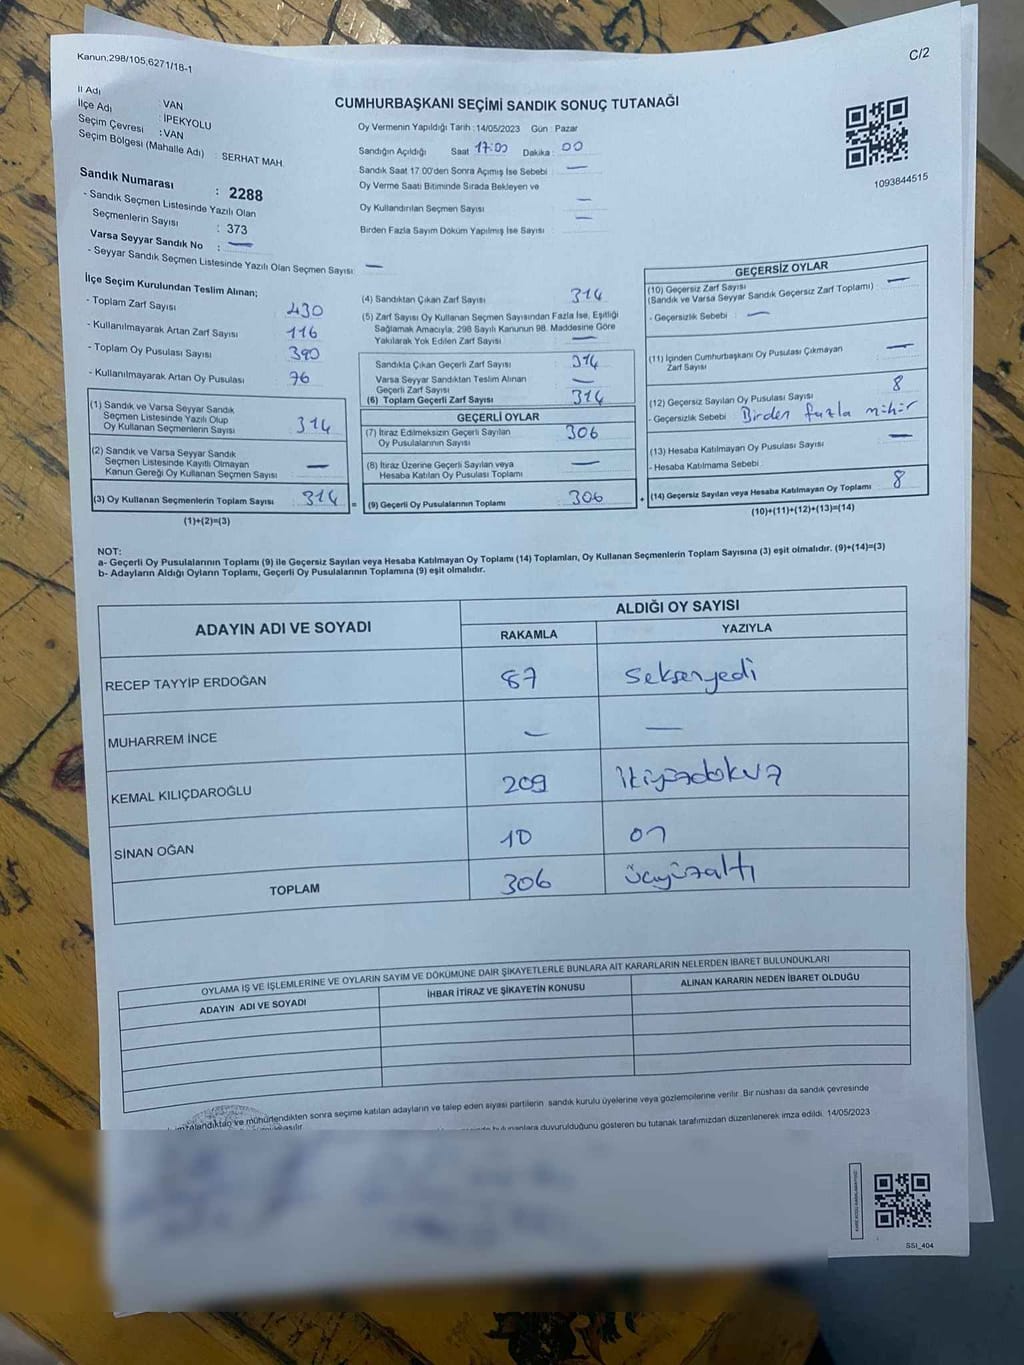 Kanun;298/105,6271/18-1
C/2
İl Adı : VAN
İlçe Adı : İPEKYOLU
Seçim Çevresi : VAN
Seçim Bölgesi (Mahalle Adı) : SERHAT MAH.
Sandık Numarası : 2288
- Sandık Seçmen Listesinde Yazılı Olan
Seçmenlerin Sayısı : 373
Varsa Seyyar Sandık No : —
- Seyyar Sandık Seçmen Listesinde Yazılı Olan Seçmen Sayısı: —
CUMHURBAŞKANI SEÇİMİ SANDIK SONUÇ TUTANAĞI
Oy Vermenin Yapıldığı Tarih : 14/05/2023 Gün : Pazar
Sandığın Açıldığı Saat 17:00 Dakika : 00
Sandık Saat 17.00'den Sonra Açımış İse Sebebi : —
Oy Verme Saati Bitiminde Sırada Bekleyen ve
Oy Kullandırılan Seçmen Sayısı : —
Birden Fazla Sayım Döküm Yapılmış İse Sayısı : —
1093844515
İlçe Seçim Kurulundan Teslim Alınan;
- Toplam Zarf Sayısı : 430
- Kullanılmayarak Artan Zarf Sayısı : 116
- Toplam Oy Pusulası Sayısı : 390
- Kullanılmayarak Artan Oy Pusulası : 76
(1) Sandık ve Varsa Seyyar Sandık
Seçmen Listesinde Yazılı Olup
Oy Kullanan Seçmenlerin Sayısı : 314
(2) Sandık ve Varsa Seyyar Sandık
Seçmen Listesinde Kayıtlı Olmayan
Kanun Gereği Oy Kullanan Seçmen Sayısı : —
(3) Oy Kullanan Seçmenlerin Toplam Sayısı : 314 =
(1)+(2)=(3)
(4) Sandıktan Çıkan Zarf Sayısı : 314
(5) Zarf Sayısı Oy Kullanan Seçmen Sayısından Fazla İse, Eşitliği
Sağlamak Amacıyla, 298 Sayılı Kanunun 98. Maddesine Göre
Yakılarak Yok Edilen Zarf Sayısı : —
Sandıkta Çıkan Geçerli Zarf Sayısı : 314
Varsa Seyyar Sandıktan Teslim Alınan
Geçerli Zarf Sayısı : —
(6) Toplam Geçerli Zarf Sayısı : 314
GEÇERLİ OYLAR
(7) İtiraz Edilmeksizin Geçerli Sayılan
Oy Pusulalarının Sayısı : 306
(8) İtiraz Üzerine Geçerli Sayılan veya
Hesaba Katılan Oy Pusulası Toplamı : —
(9) Geçerli Oy Pusulalarının Toplamı : 306 +
GEÇERSİZ OYLAR
(10) Geçersiz Zarf Sayısı
(Sandık ve Varsa Seyyar Sandık Geçersiz Zarf Toplamı) : —
- Geçersizlik Sebebi : —
(11) İçinden Cumhurbaşkanı Oy Pusulası Çıkmayan
Zarf Sayısı : —
(12) Geçersiz Sayılan Oy Pusulası Sayısı : 8
- Geçersizlik Sebebi : Birden fazla mühür
(13) Hesaba Katılmayan Oy Pusulası Sayısı : —
- Hesaba Katılmama Sebebi :
(14) Geçersiz Sayılan veya Hesaba Katılmayan Oy Toplamı : 8
(10)+(11)+(12)+(13)=(14)
NOT:
a- Geçerli Oy Pusulalarının Toplamı (9) ile Geçersiz Sayılan veya Hesaba Katılmayan Oy Toplamı (14) Toplamları, Oy Kullanan Seçmenlerin Toplam Sayısına (3) eşit olmalıdır. (9)+(14)=(3)
b- Adayların Aldığı Oyların Toplamı, Geçerli Oy Pusulalarının Toplamına (9) eşit olmalıdır.
ADAYIN ADI VE SOYADI
ALDIĞI OY SAYISI
RAKAMLA YAZIYLA
RECEP TAYYİP ERDOĞAN 87 seksenyedi
MUHARREM İNCE — —
KEMAL KILIÇDAROĞLU 209 ikiyüzdokuz
SİNAN OĞAN 10 on
TOPLAM 306 üçyüzaltı
OYLAMA İŞ VE İŞLEMLERİNE VE OYLARIN SAYIM VE DÖKÜMÜNE DAİR ŞİKAYETLERLE BUNLARA AİT KARARLARIN NELERDEN İBARET BULUNDUKLARI
ADAYIN ADI VE SOYADI İHBAR İTİRAZ VE ŞİKAYETİN KONUSU ALINAN KARARIN NEDEN İBARET OLDUĞU
ve mühürlendikten sonra seçime katılan adayların ve talep eden siyasi partilerin sandık kurulu üyelerine veya gözlemcilerine verilir. Bir nüshası da sandık çevresinde
duyurulduğunu gösteren bu tutanak tarafımızdan düzenlenerek imza edildi. 14/05/2023
SSİ_404